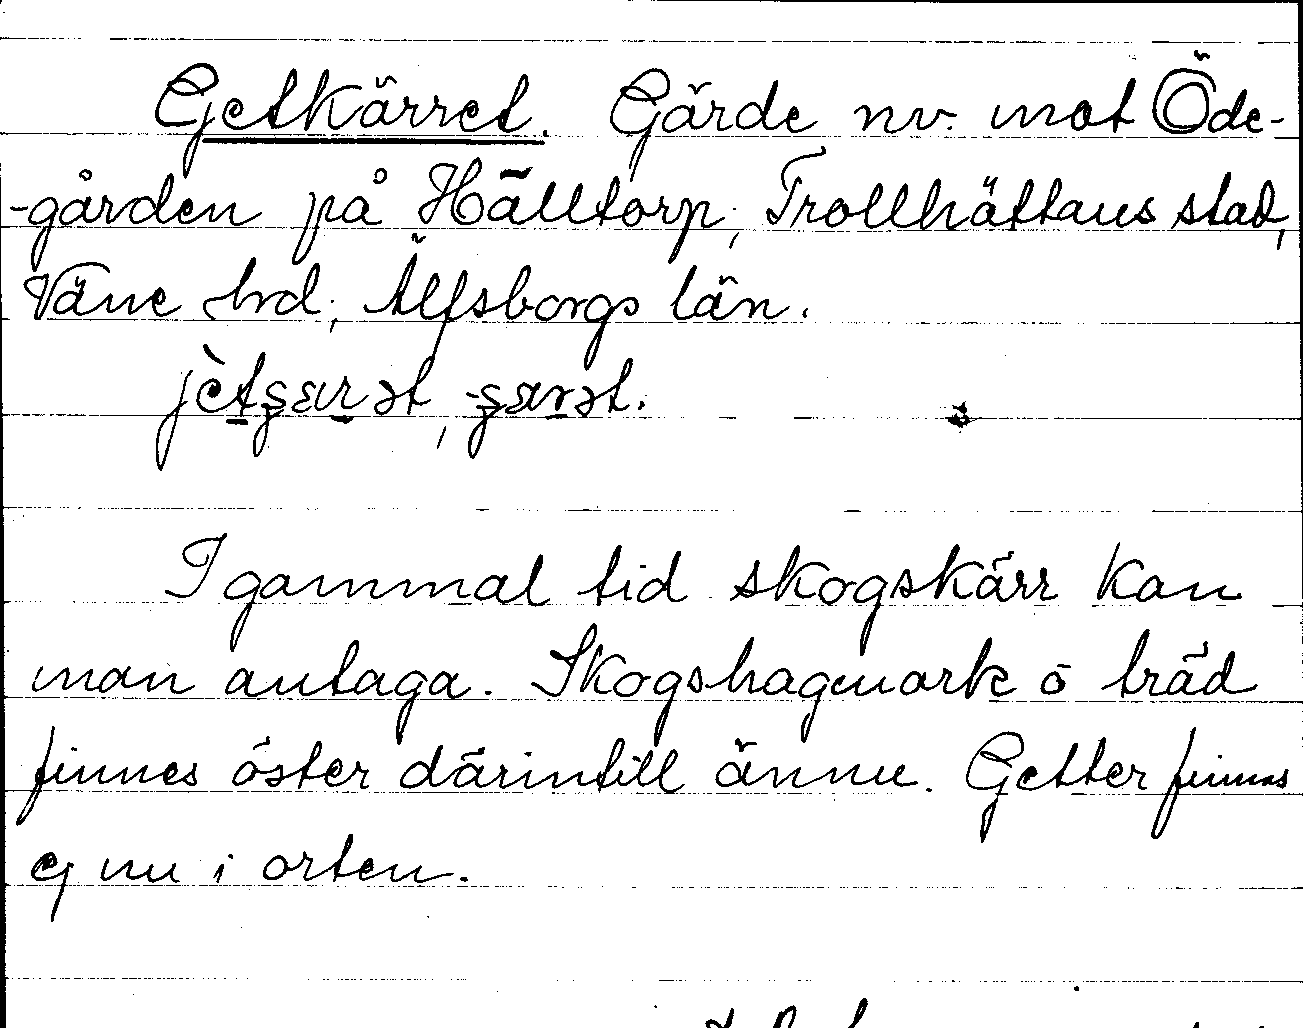 Getkärret. Gärde nv. mot Öde-
-gården på Hälltorp, Trollhättans stad,
Väne hrd, Älfsborgs län.
jètʂærət, -ʂærət.
I gammal tid skogskärr kan
man antaga. Skogshagmark o träd
finnes öster därintill ännu. Getter finnas
ej nu i orten.